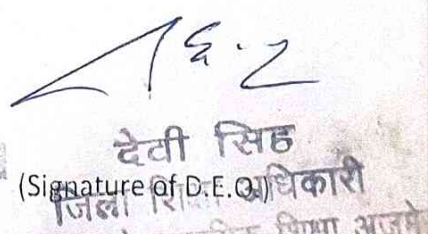 देवी सिंह
(Signature of D.E.O.)
जिला शिक्षा अधिकारी
शिक्षा अजमेर